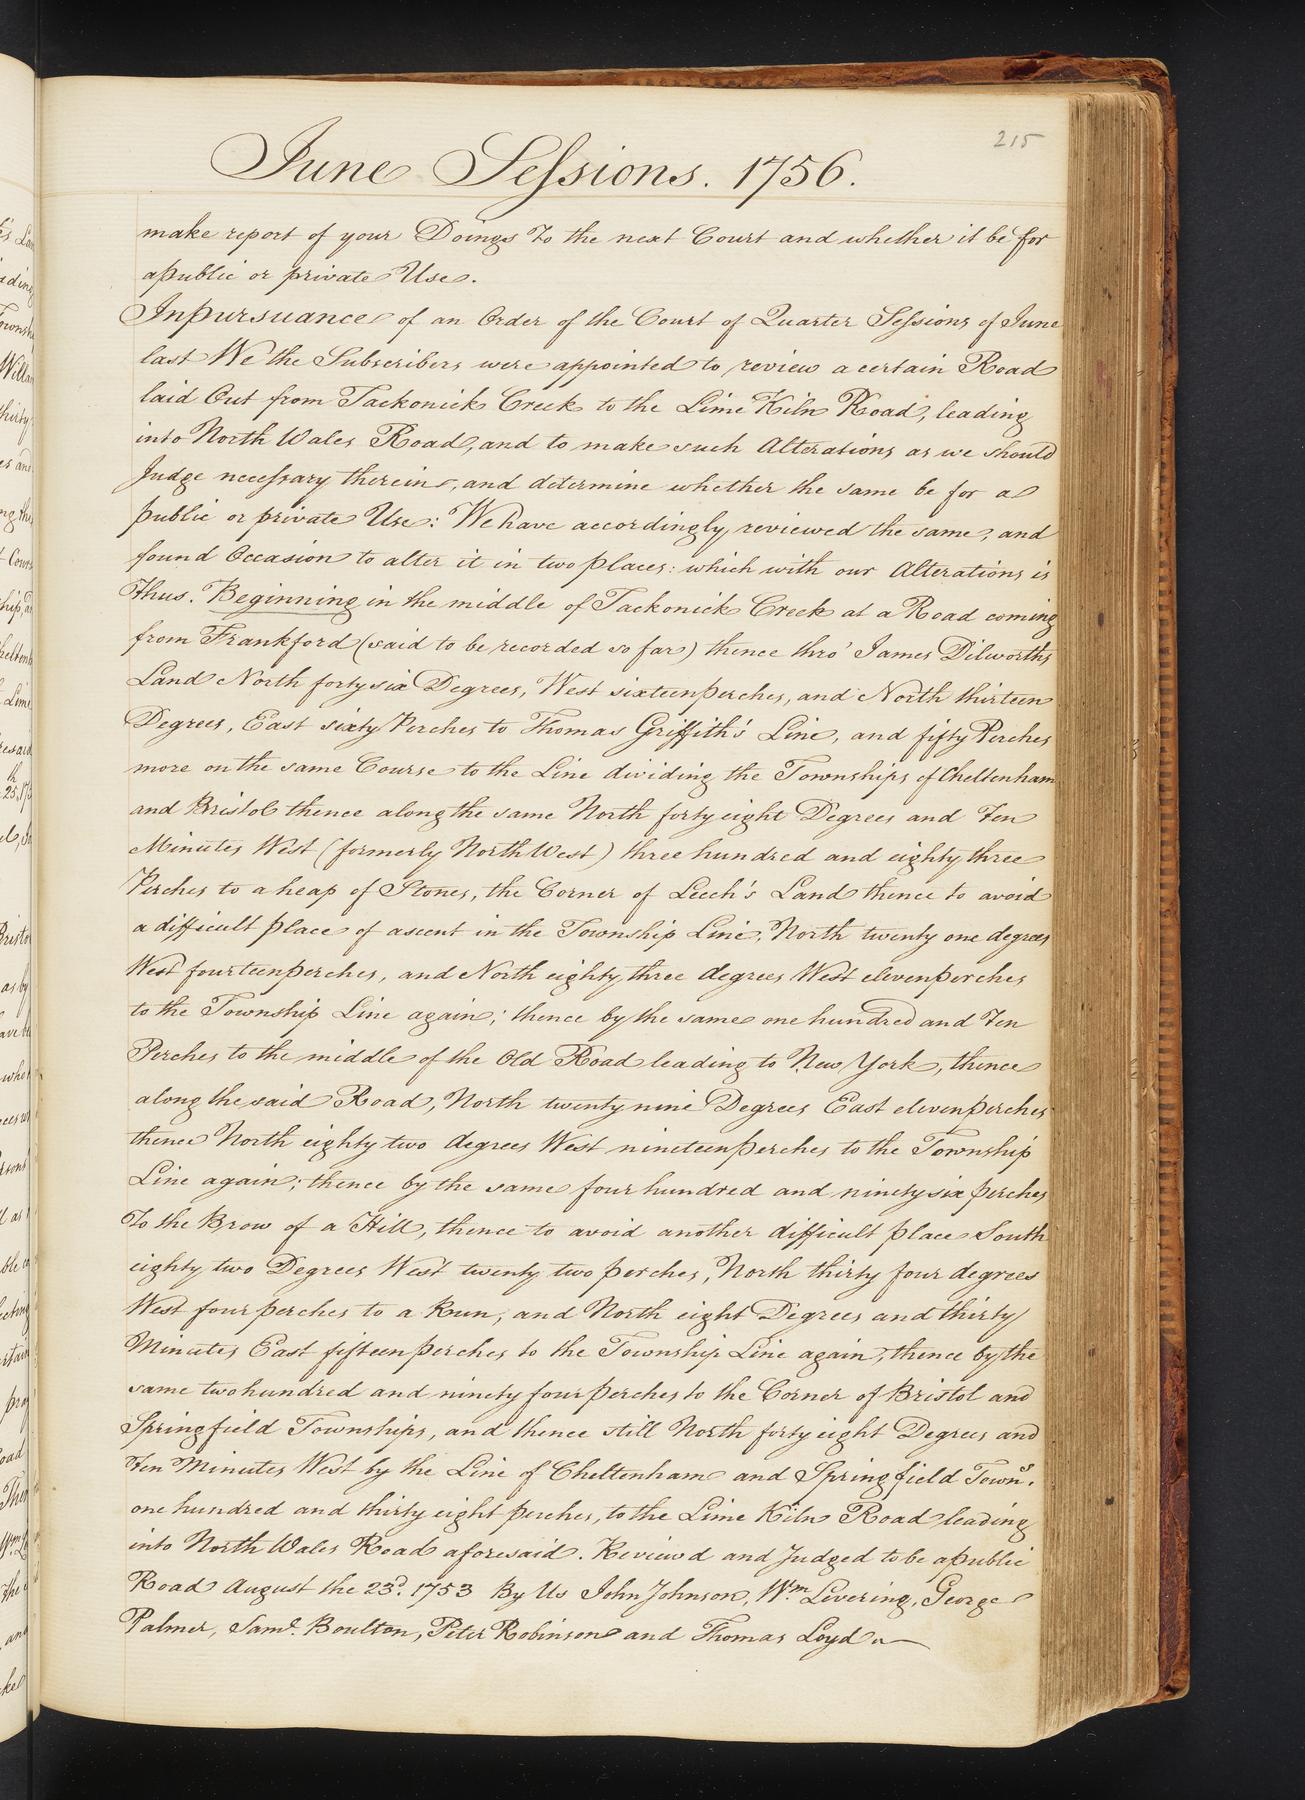 215
June Sessions. 1756.
make report of your Doings to the next Court and whether it be for
a public or private Use.
In pursuance of an Order of the Court of Quarter Sessions of June
last We the Subscribers were appointed to review a certain Road
laid Out from Tackonick Creek to the Lime Kiln Road, leading
into North Wales Road, and to make such Alterations as we should
Judge necessary therein, and determine whether the same be for a
public or private Use: We have accordingly reviewed the same, and
found Occasion to alter it in two places: which with our Alterations is
thus. Beginning in the middle of Tackonick Creek at a Road coming
from Frankford (said to be recorded so far) thence thro' James Dilworths
Land North forty six Degrees, West sixteen perches, and North thirteen
Degrees, East sixty Perches to Thomas Griffith's Line, and fifty Perches
more on the same Course to the Line dividing the Townships of Cheltenham
and Bristol thence along the same North forty eight Degrees and Ten
Minutes West (formerly North West) three hundred and eighty three
Perches to a heap of Stones, the Corner of Leech's Land thence to avoid
a difficult place of ascent in the Township Line, North twenty one degrees
West fourteen perches, and North eighty three degrees West eleven perches
to the Township Line again; thence by the same one hundred and Ten
Perches to the middle of the Old Road leading to New York, thence
along the said Road, North twenty nine Degrees East eleven perches
thence North eighty two degrees West nineteen perches to the Township
Line again; thence by the same four hundred and ninety six perches
To the Brow of a Hill, thence to avoid another difficult place South
eighty two Degrees West twenty two perches, North thirty four degrees
West four perches to a Run, and North eight Degrees and thirty
Minutes East fifteen perches to the Township Line again, thence by the
same two hundred and ninety four perches to the Corner of Bristol and
Springfield Townships, and thence still North forty eight Degrees and
Ten Minutes West by the Line of Cheltenham and Springfield Towns.
one hundred and thirty eight perches, to the Lime Kiln Road leading
into North Wales Road aforesaid. Review'd and Judged to be a public
Road August the 23d. 1753 By Us John Johnson, Wm. Levering, George
Palmer, Saml. Boulton, Peter Robinson and Thomas Loyd